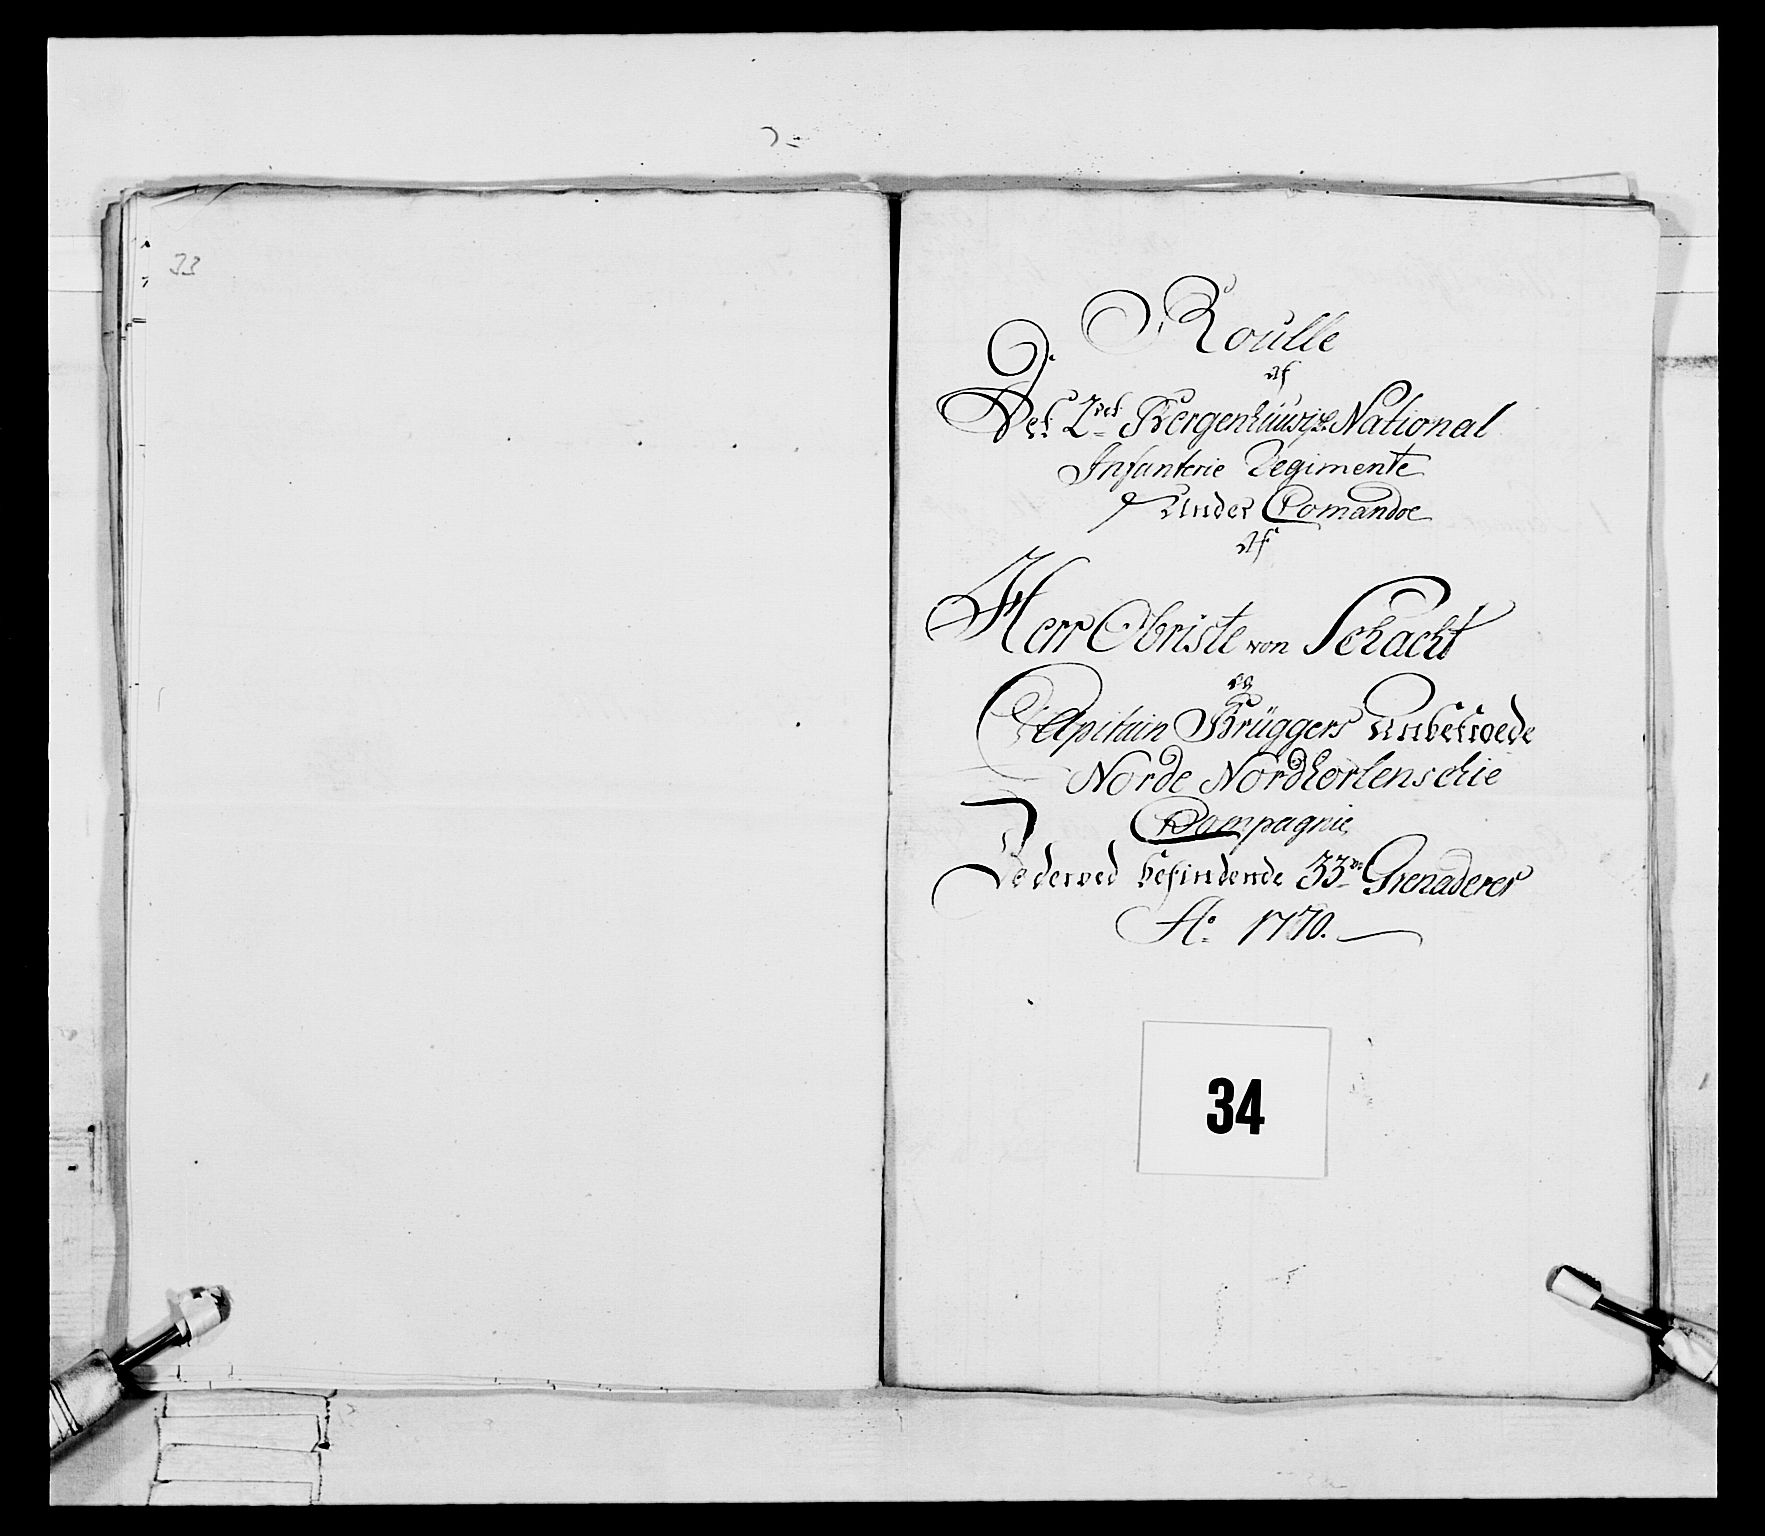 33
Roulle
af
Det 2det Bergenhuusiske National
Infanterie Regimente
Under Comandoe
Af
Herr Obriste von Schacht
og
Capitain Brüggers Anbetroede
Norde Nordhorlenschie
Compagnie,
Dederved befindende 33ve Grenaderer
Ao 1770.
34